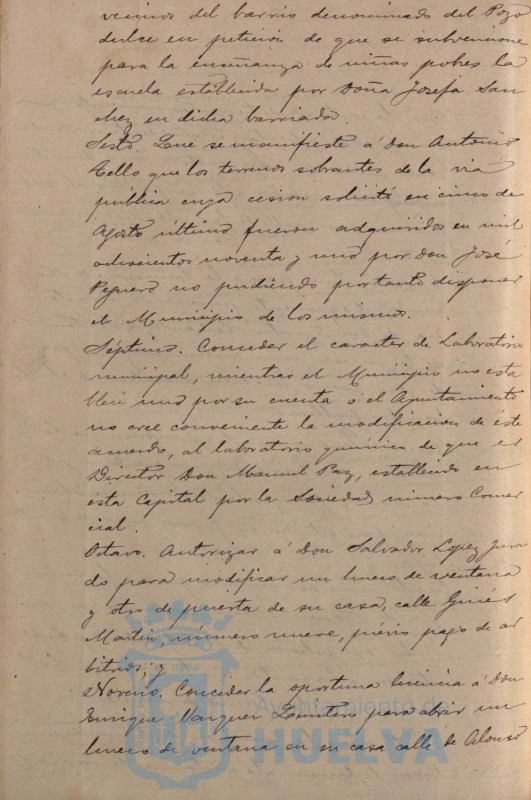 vecinos del barrio denominado del Pozo
dulce en peticion de que se subvencione
para la enseñanza de niñas pobres la
escuela establecida por Doña Josefa San
chez en dicha barriada.
Sesto. Que se manifieste á Don Antonio
Tello que los terrenos sobrantes de la via
pública cuya cesion solicitó en cinco de
Agosto último fueron adquiridos en mil
ochocientos noventa y uno por Don José
Peguero no pudiendo por tanto disponer
el Municipio de los mismos.
Séptimo. Conceder el caracter de Laboratorio
municipal, mientras el Municipio no esta
blece uno por su cuenta ó el Ayuntamiento
no cree conveniente la modificacion de éste
acuerdo, al laboratorio quimico de que es
Director Don Manuel Paz, establecido en
esta Capital por la Sociedad minero Comer
cial.
Octavo. Autorizar á Don Salvador Lopez Jura
do para modificar un hueco de ventana
y otro de puerta de su casa, calle Ginés
Martin, número nueve, prévio pago de ar
bitrios; y
Noveno. Conceder la oportuna licencia á Don
Enrique Vazquez para abrir un
hueco de ventana en su casa calle de Alonso
Ayuntamiento de
HUELVA